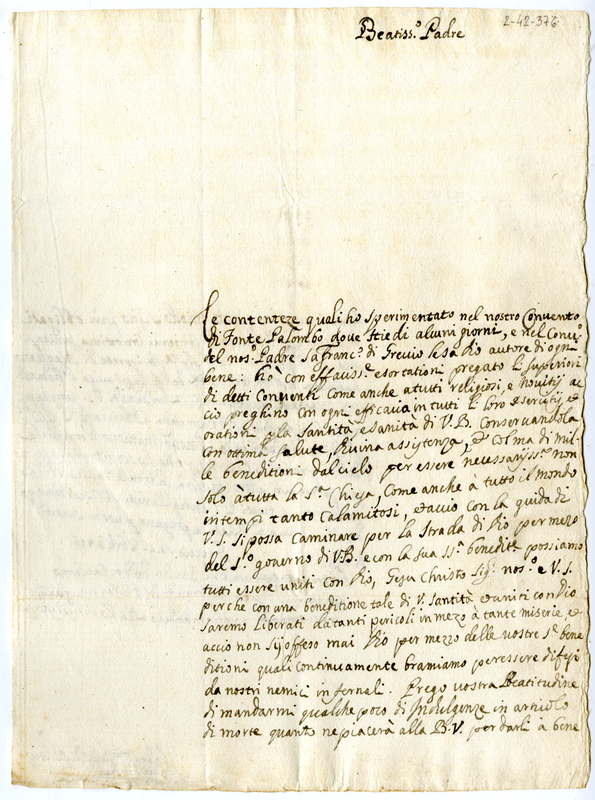 2-42-376
Beatiss.º Padre
Le contenteze quali ho sperimentato nel nostro Convento
di Fonte Palombo doue stiedi alcuni giorni, e nel Conu.º
del nos.º Padre S. franc.º di Greuio lesa Dio autore di ogni
bene: hò con efficaciss.e esortationi pregato li superiori
di detti Conuenti Come anche a tutti religiosi, e nouitij ac
ciò preghino con ogni efficacia in tutti li loro esercitij, et
orationi p la santità e sanità di V.B. Conseruandola
con ottima salute, Diuina assistenza, et colma di mil-
le beneditioni dal cielo per essere necessarijss.e non
solo à tutta la S.ta Chiesa, Come anche a tutto il mondo
in tempi tanto Calamitosi, et accio con la guida di
V.S. si possa caminare per la strada di Dio per mezo
del S.º gouerno di V.B. e con la sua ss.a bened.ne possiamo
tutti essere uniti con Dio, Giesu Christo Sig.r nos.º e V.S.
perche con una beneditione tale di V. Santità et uniti con Dio
saremo Liberati da tanti pericoli in mezo à tante miserie, et
accio non sij offeso mai Dio per mezzo delle vostre S.e bene
ditioni quali continuamente bramiamo per essere difesi
da nostri nemici infernali. Prego vostra Beatitudine
di mandarmi qualche poco di Indulgenze in articolo
di morte quanto ne piacerà alla B.V. per darli à bene